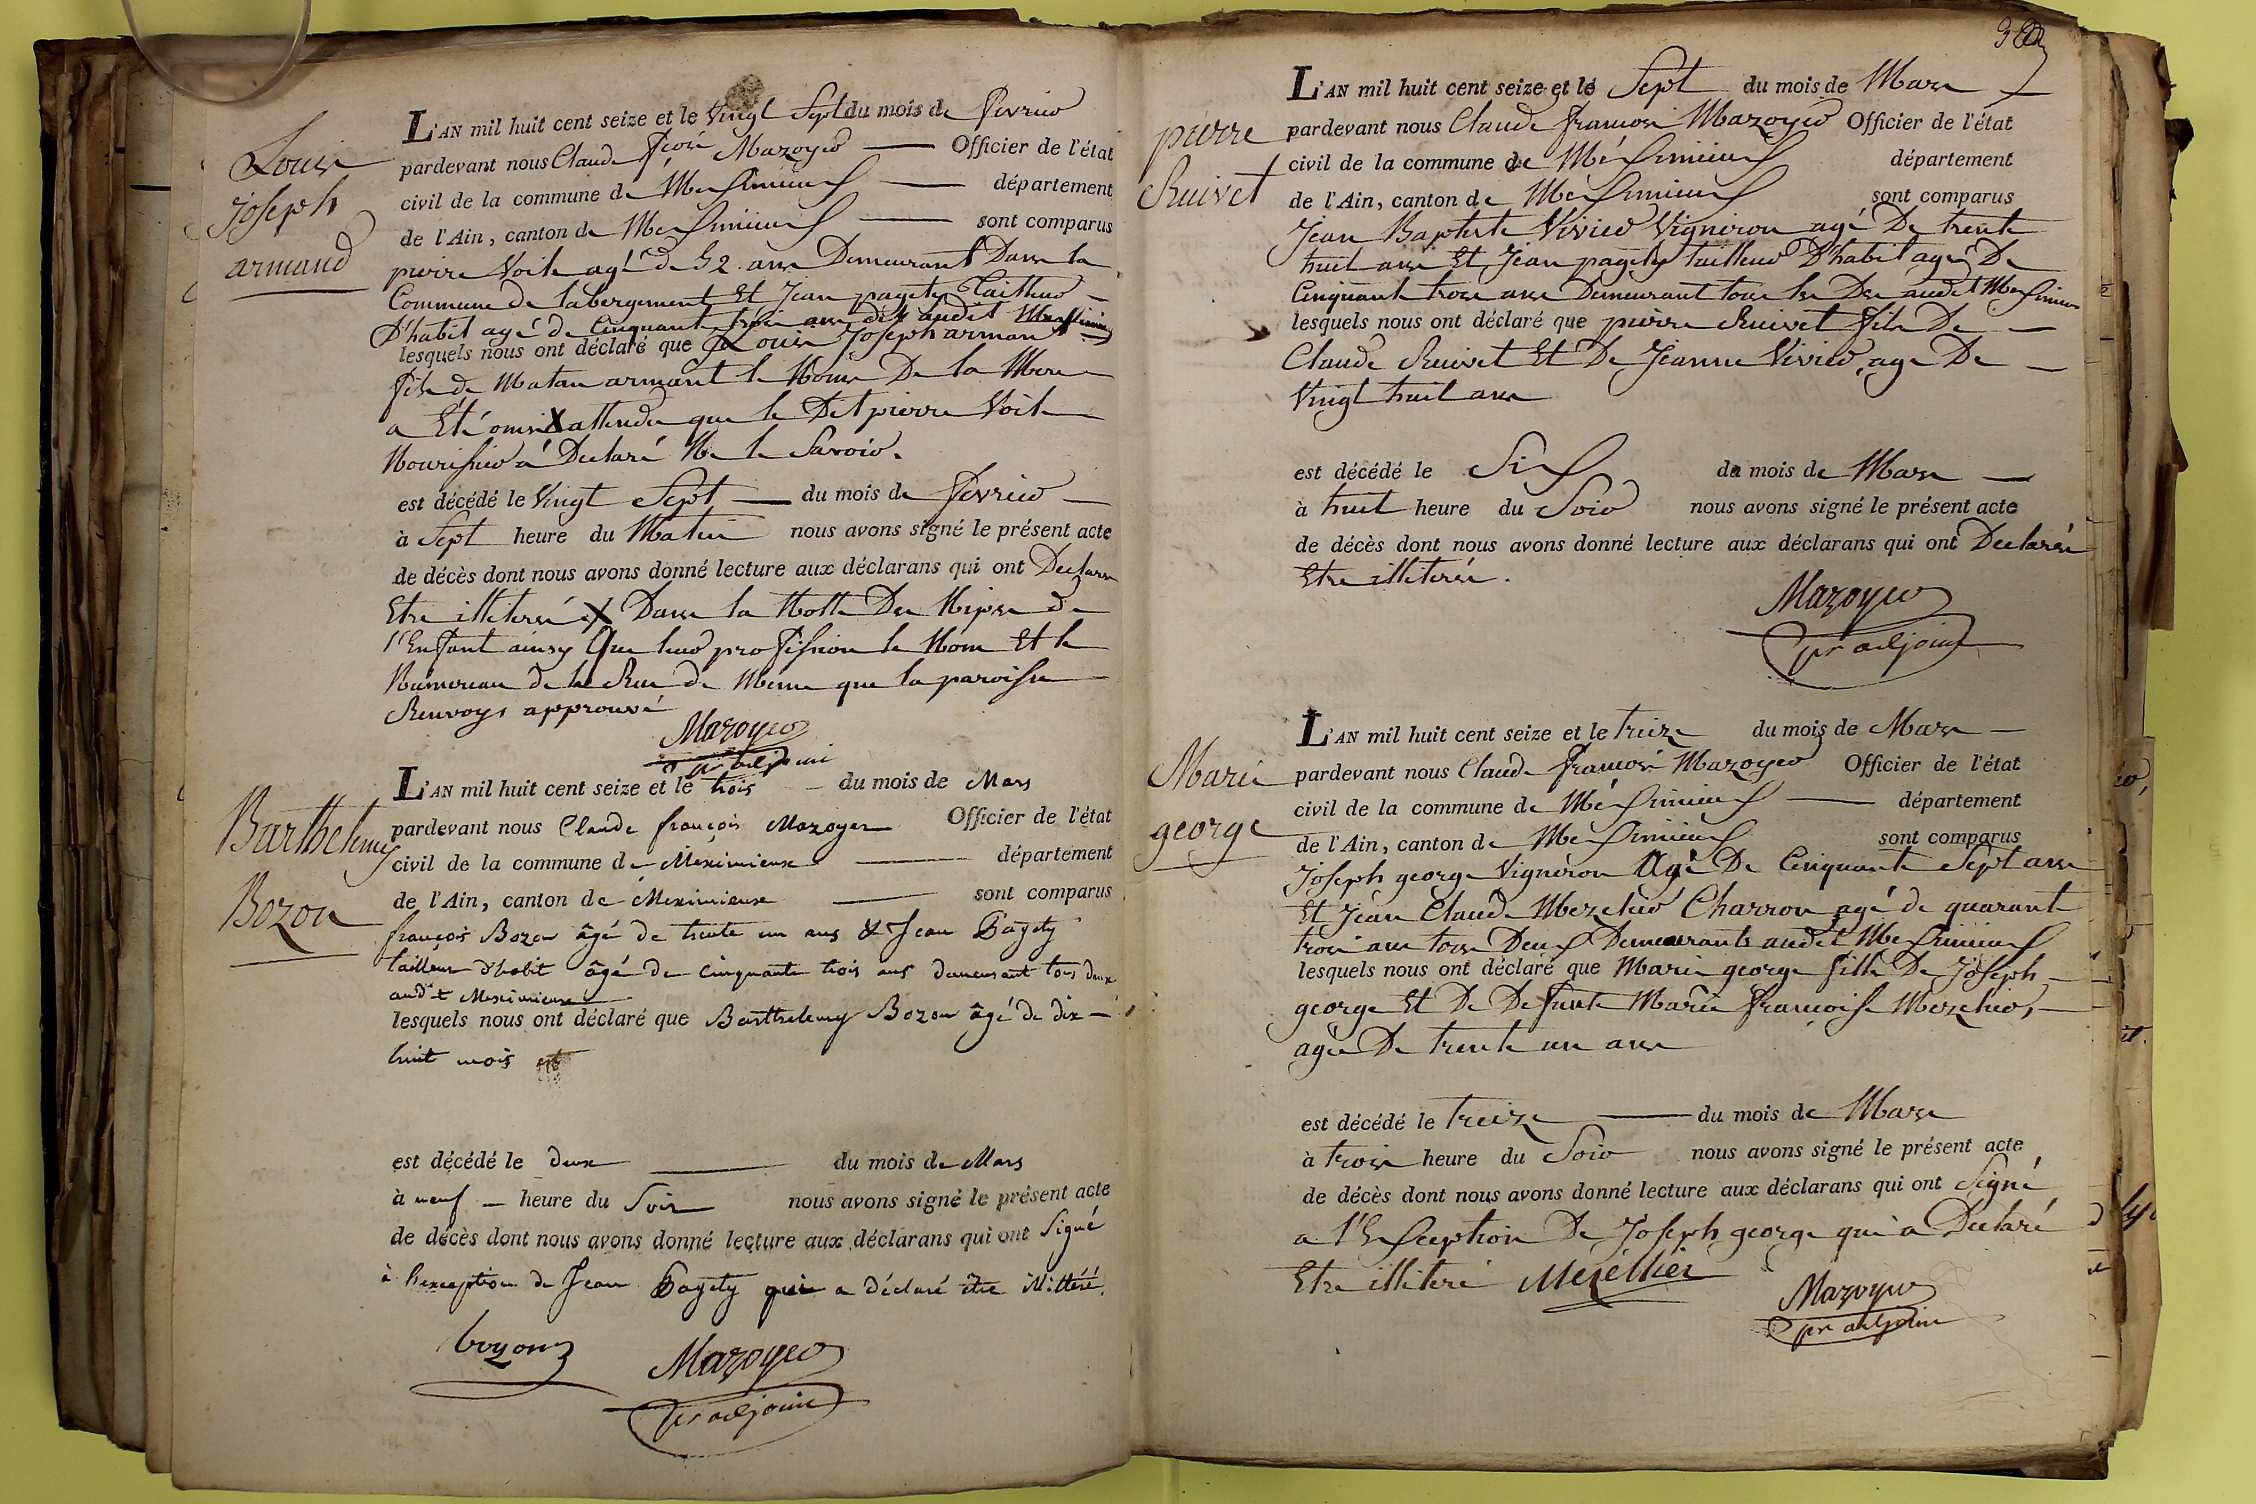 Louis
joseph
armand
L'AN mil huit cent seize et le Vingt Sept du mois de fevrier
pardevant nous Claude fçois Mazoyer Officier de l'état
civil de la commune de Meximieux département
de l'Ain, canton de Meximieux sont comparus
pierre Voile agé de 52 ans Demeurant Dans la
Commune de labergement Et Jean pagety Tailleur
D'habit agé de Cinquante trois ans audit Meximieux
lesquels nous ont déclaré que Louis Joseph armant
fils de Matan armant le Nom De la Mere
a Eté omis X attendu que le Dit pierre Voile
Nourissier a Declaré Ne le Savoir.
est décédé le Vingt Sept du mois de fevrier
à Sept heure du Matin nous avons signé le présent acte
de décès dont nous avons donné lecture aux déclarans qui ont Declarer
Etre illiteré X Dans la Notte De
l'Enfant ainsy Que leur profission le Nom Et le
Numereau de la Rue de Meme que la paroisse
Renvoys approuvé
Mazoyer
pr adjoint
Barthelemy
Bozon
L'AN mil huit cent seize et le trois du mois de Mars
pardevant nous Claude françois Mazoyer Officier de l'état
civil de la commune de Meximieux département
de l'Ain, canton de Meximieux sont comparus
françois Bozon âgé de trente un ans & Jean Pagety
tailleur d'habit âgé de cinquante trois ans demeurant tous deux
aud.t Meximieux
lesquels nous ont déclaré que Barthelemy Bozon âgé de dix
huit mois
est décédé le deux du mois de Mars
à neuf heure du Soir nous avons signé le présent acte
de décès dont nous avons donné lecture aux déclarans qui ont Signé
à l'exception de Jean Pagety qui a déclaré être illittéré.
bozon
Mazoyer
pr adjoint
pierre
Ruivet
L'AN mil huit cent seize et le Sept du mois de Mars
pardevant nous Claude francois Mazoyer Officier de l'état
civil de la commune de Méximieux département
de l'Ain, canton de Meximieux sont comparus
Jean Baptiste Vivier Vigneron agé De trente
huit ans Et Jean pagety tailleur D'habit agé De
Cinquante trois ans Demeurant tous les Deux audit Meximieux
lesquels nous ont déclaré que pierre Ruivet fils De
Claude Ruivet Et De Jeanne Vivier, age De
Vingt huit ans
est décédé le Six du mois de Mars
à huit heure du Soir nous avons signé le présent acte
de décès dont nous avons donné lecture aux déclarans qui ont Declarés
Etre illiterés.
Mazoyer
pr adjoint
Marie
george
L'AN mil huit cent seize et le treize du mois de Mars
pardevant nous Claude francois Mazoyer Officier de l'état
civil de la commune de Méximieux département
de l'Ain, canton de Meximieux sont comparus
Joseph george Vigneron Agé De Cinquante Sept ans
Et Jean Claude Mezelier Charron agé de quarant
trois ans tous Deux Demeurants audit Meximieux
lesquels nous ont déclaré que Marie george fille De Joseph
george Et De Defunte Marie francoise Mezelier,
agée De trente un ans
est décédé le treize du mois de Mars
à trois heure du Soir nous avons signé le présent acte
de décès dont nous avons donné lecture aux déclarans qui ont Signé
a l'Exception De Joseph george qui a Declaré
Etre illiteré Mezellier
Mazoyer
pr adjoint